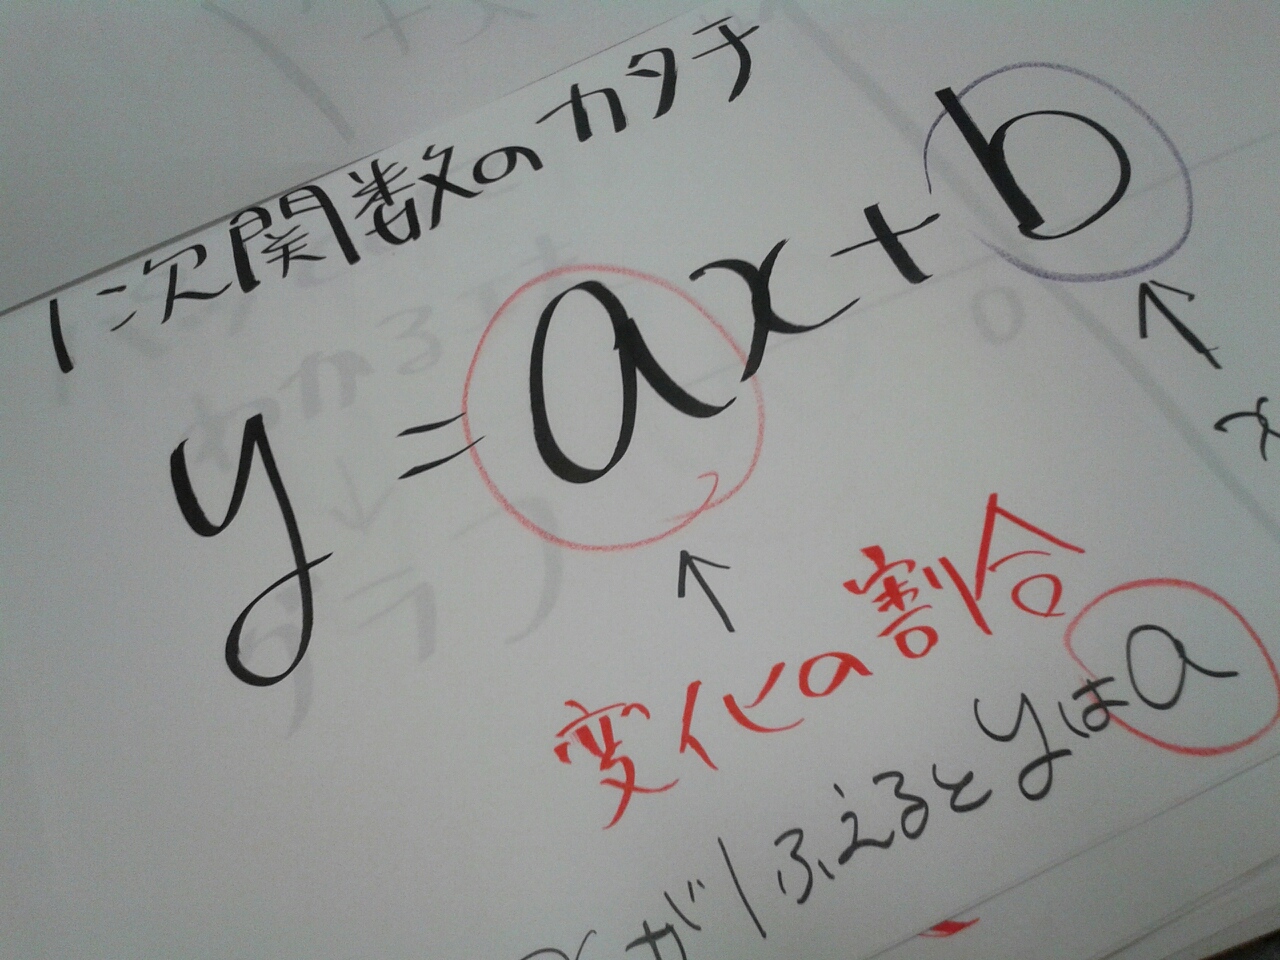 1次関数のカタチ
y=ax+b
変化の割合
xが1ふえるとyはa